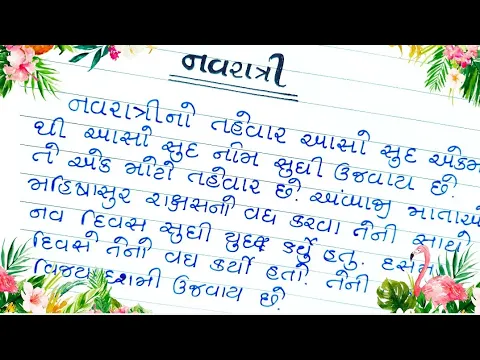 નવરાત્રી
નવરાત્રીનો તહેવાર આસો સુદ એકમ
થી આસો સુદ નોમ સુધી ઉજવાય છે.
તો એક મોટો તહેવાર છે. અંબાજી માતાએ
મહિષાસુર રાક્ષસનો વધ કરવા તેની સાથે
નવ દિવસ સુધી યુદ્ધ કર્યું હતુ. દસમા
દિવસે તેનો વધ કર્યો હતો. તેની
વિજયાદશમી ઉજવાય છે.